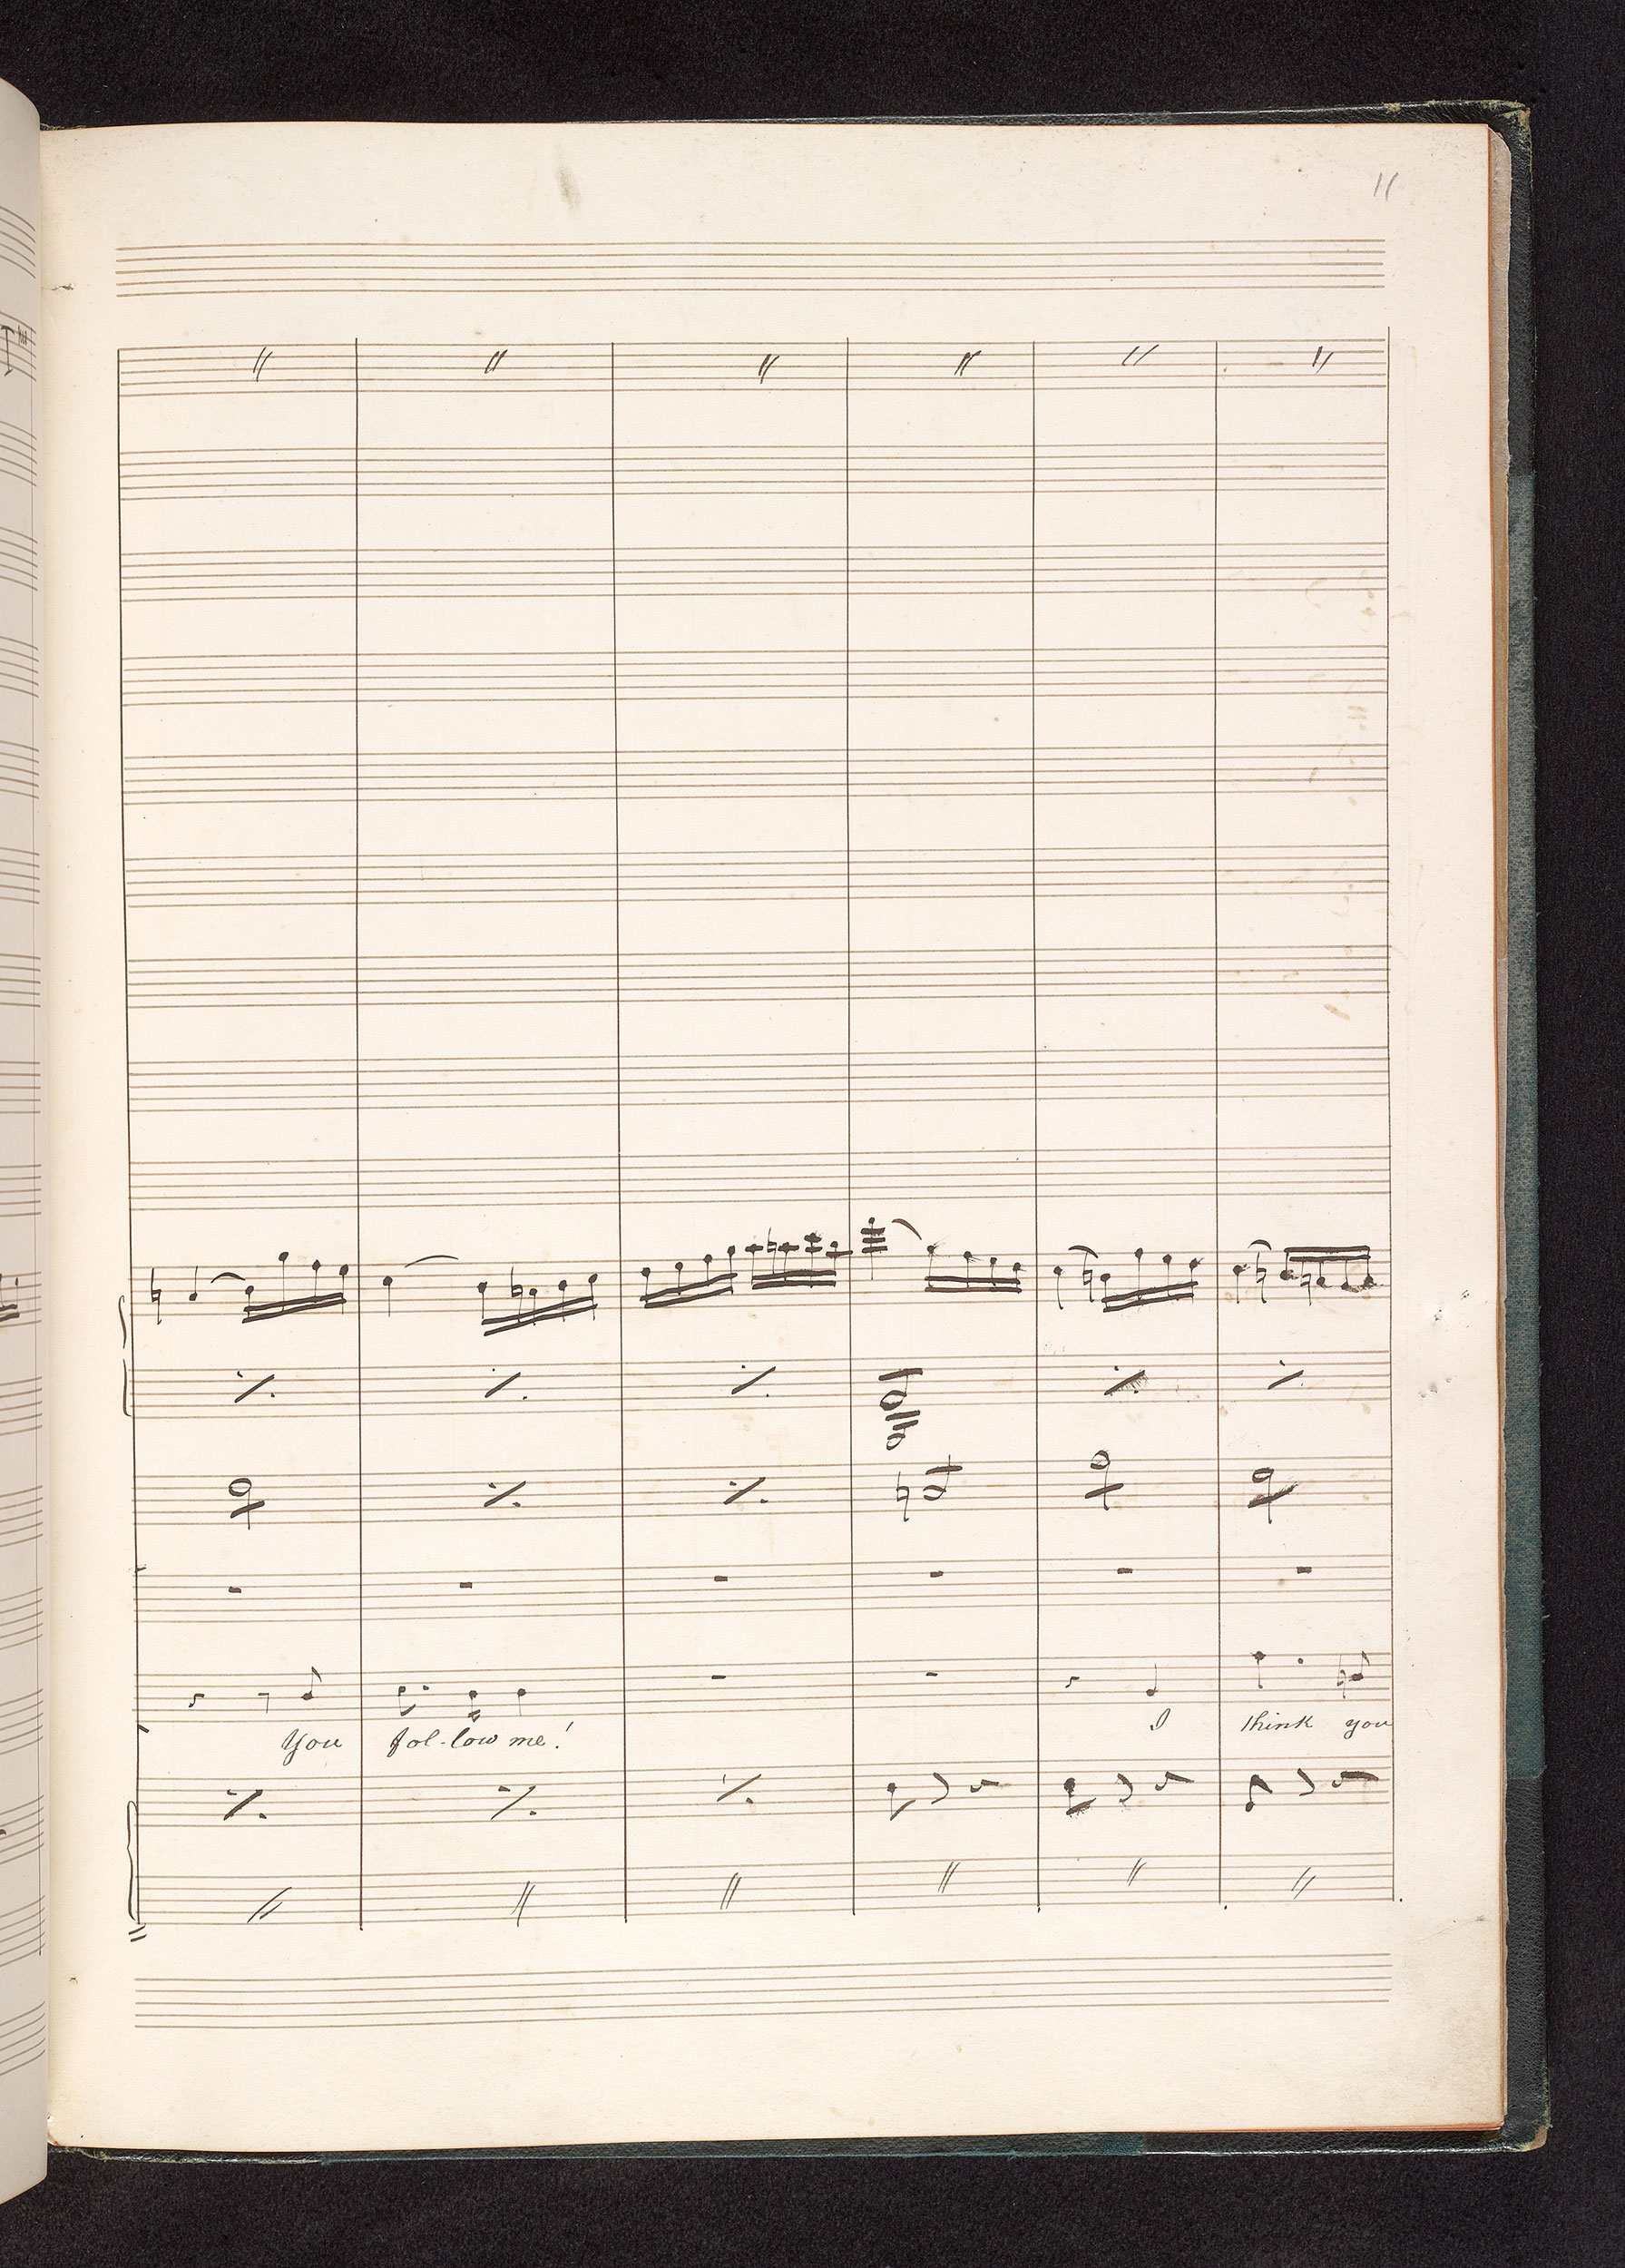 11
You fol-low me! I think you